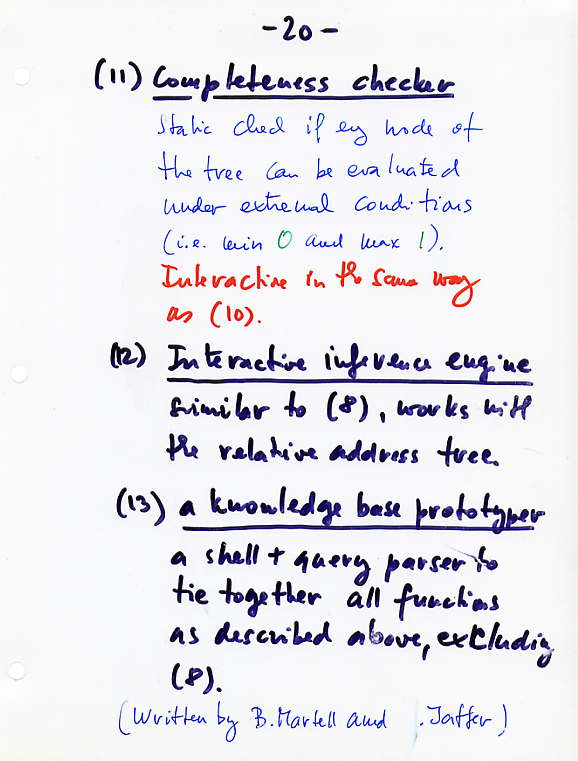 -20-
(11) Completeness checker
Static check if any node of
the tree can be evaluated
under extremal conditions
(i.e. min 0 and max 1).
Interactive in the same way
as (10).
(12) Interactive inference engine
similar to (8), works with
the relative address tree.
(13) a knowledge base prototyper
a shell + query parser to
tie together all functions
as described above, excluding
(8).
(Written by B. Martell and . Jaffer)